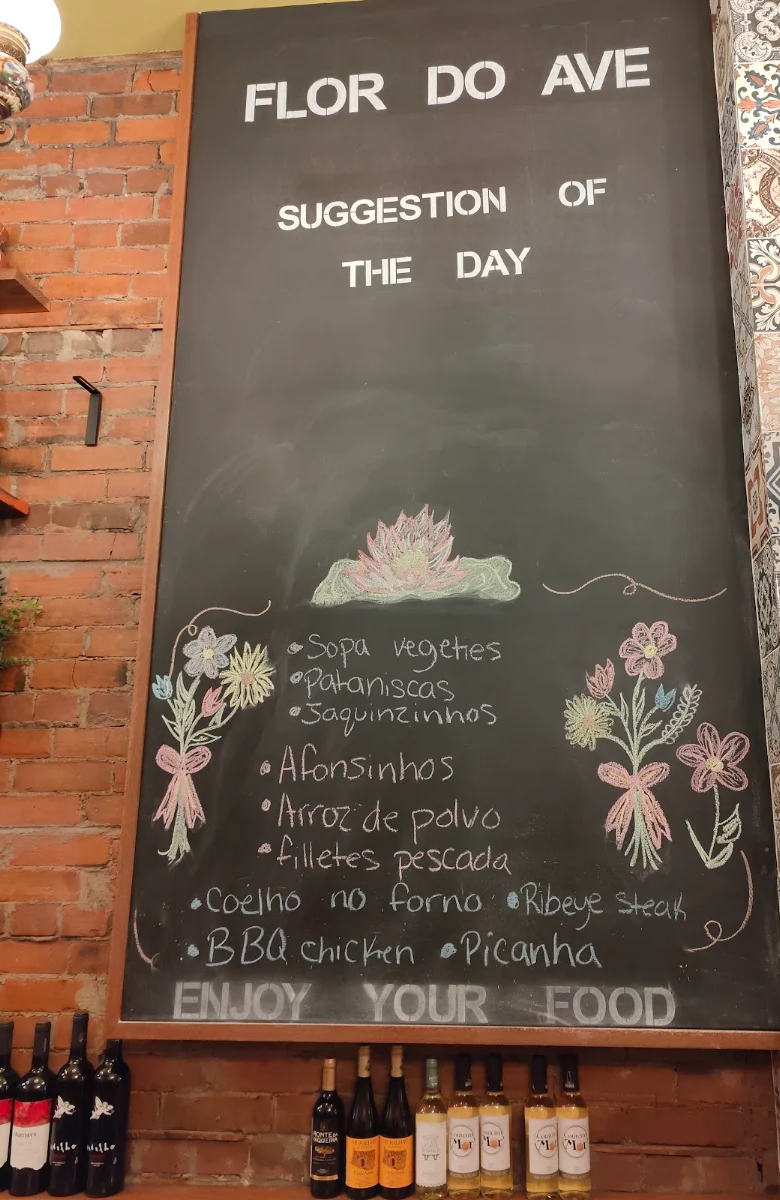 FLOR DO AVE
SUGGESTION OF
THE DAY
•Sopa vegeties
•Pataniscas
•Jaquinzinhos
•Afonsinhos
•Arroz de polvo
•filletes pescada
•Coelho no forno •Ribeye steak
•BBQ chicken •Picanha
ENJOY YOUR FOOD
MONTE DA